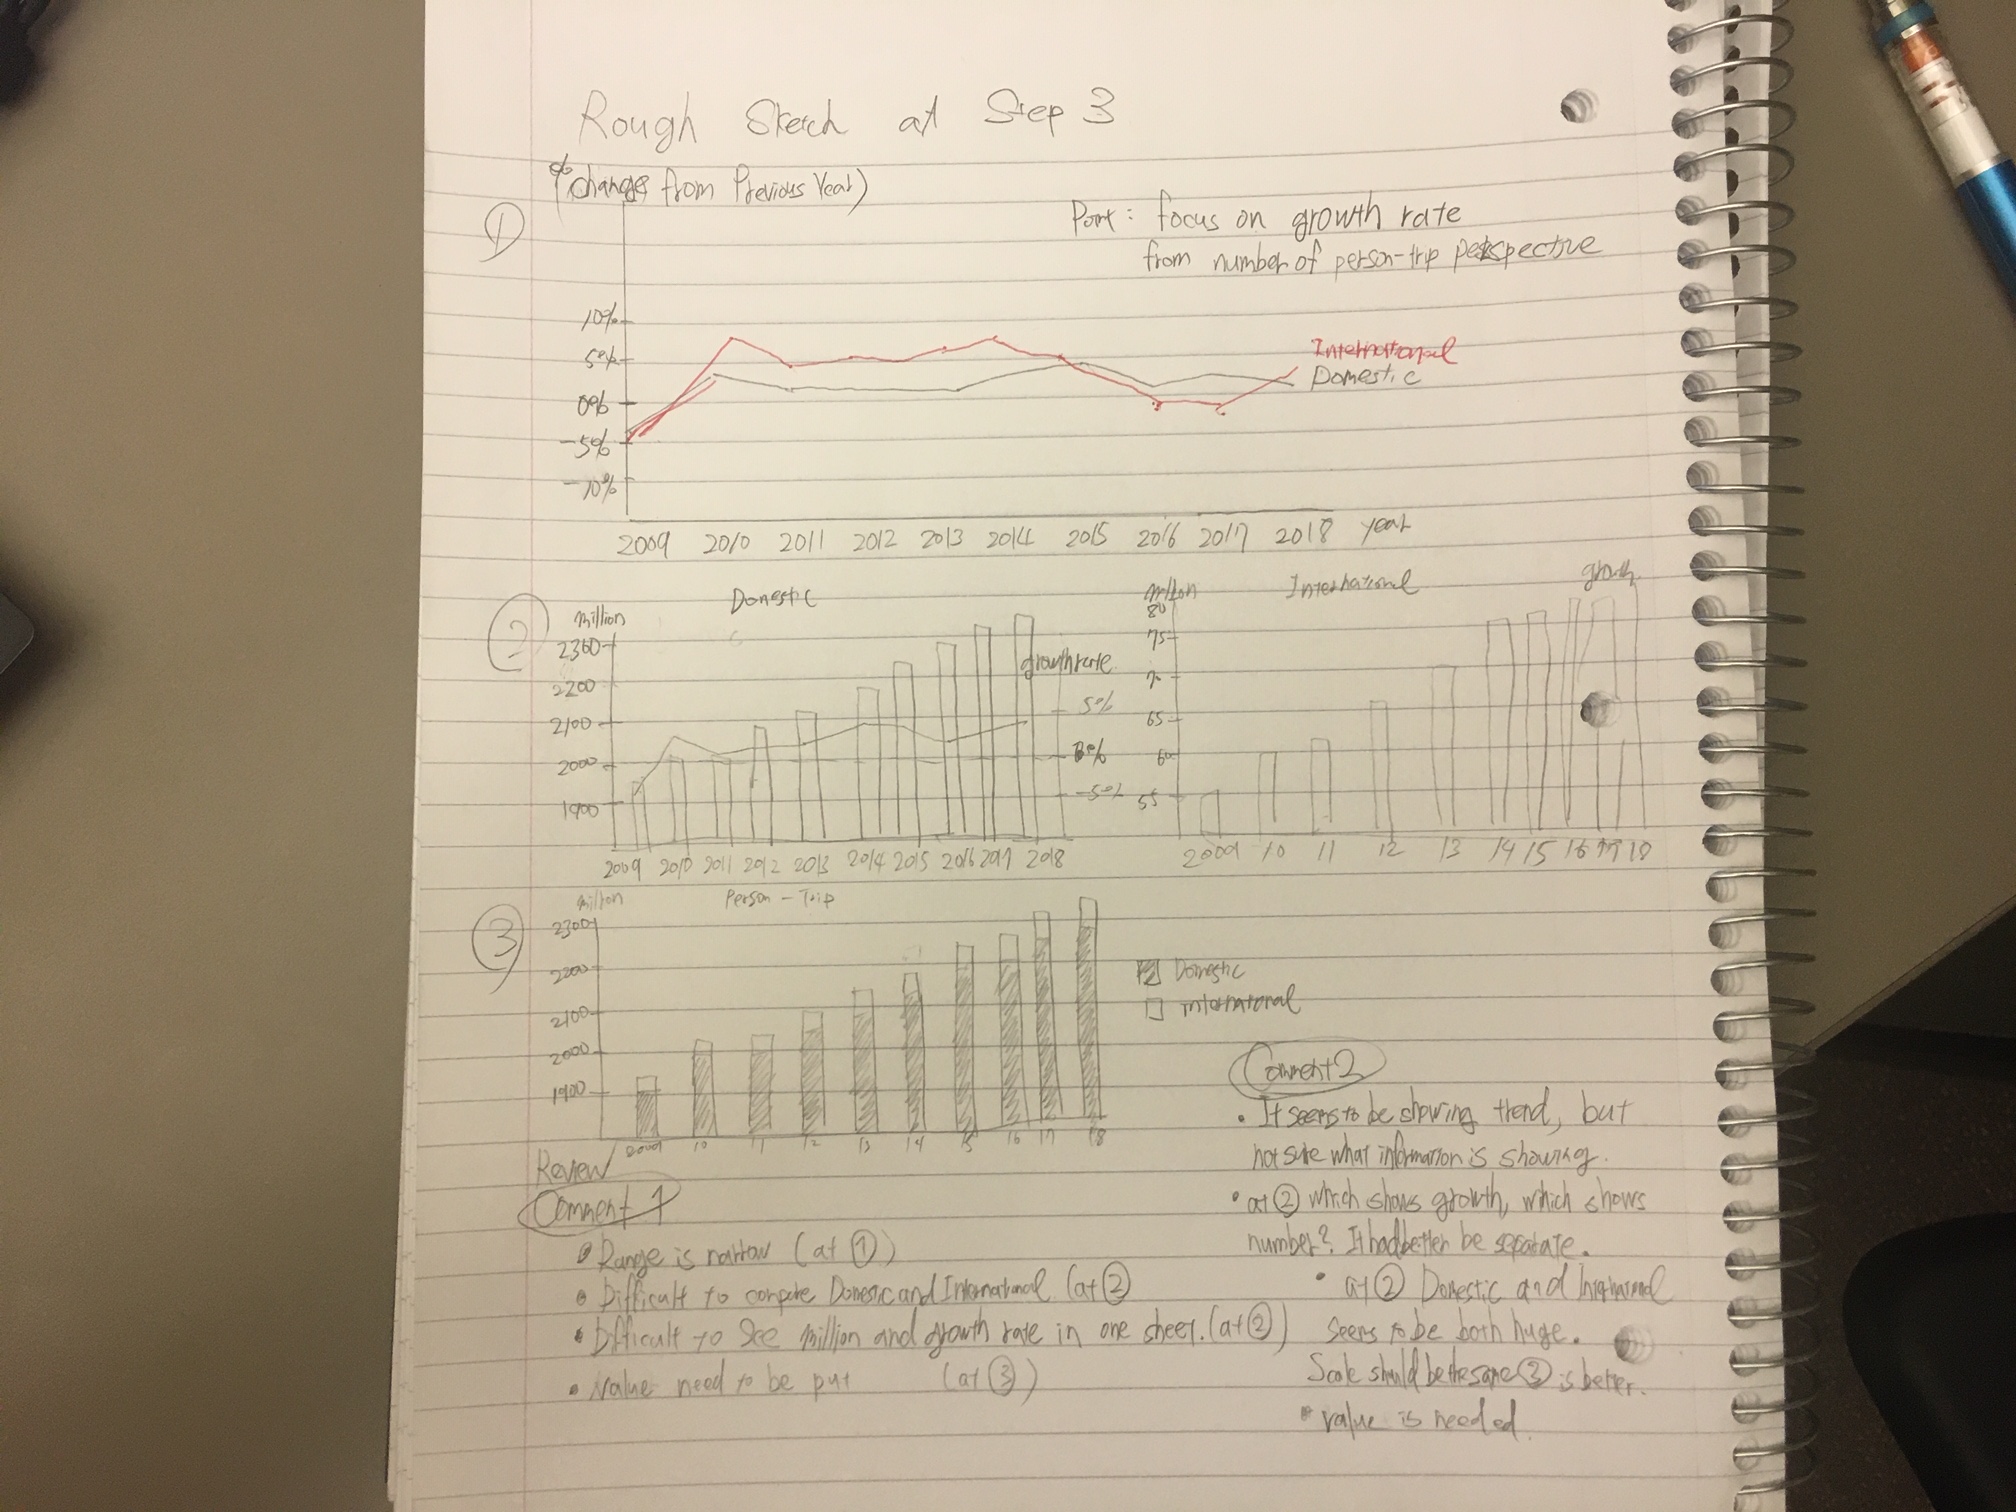 Rough Sketch at Step 3
①
% change from Previous Year)
Point : focus on growth rate
from number of person-trip perspective
10%
5%
0%
-5%
-10%
International
Domestic
2009 2010 2011 2012 2013 2014 2015 2016 2017 2018 year
②
million
Domestic
2300
2200
2100
2000
1900
growth rate
5%
0%
-5%
2009 2010 2011 2012 2013 2014 2015 2016 2017 2018
million
International
growth
80
75
70
65
60
55
2009 10 11 12 13 14 15 16 17 18
③
million
Person - Trip
2300
2200
2100
2000
1900
2009 10 11 12 13 14 15 16 17 18
Domestic
international
Review
Comment 1
• Range is narrow (at ①)
• Difficult to compare Domestic and International. (at ②)
• Difficult to see million and growth rate in one sheet. (at ②)
• Value need to be put (at ③)
Comment 2
• It seems to be showing trend, but
not sure what information is showing.
• at ② which shows growth, which shows
number? It had better be separate.
• at ② Domestic and International
seems to be both huge.
Scale should be the same ③ is better.
• value is needed.